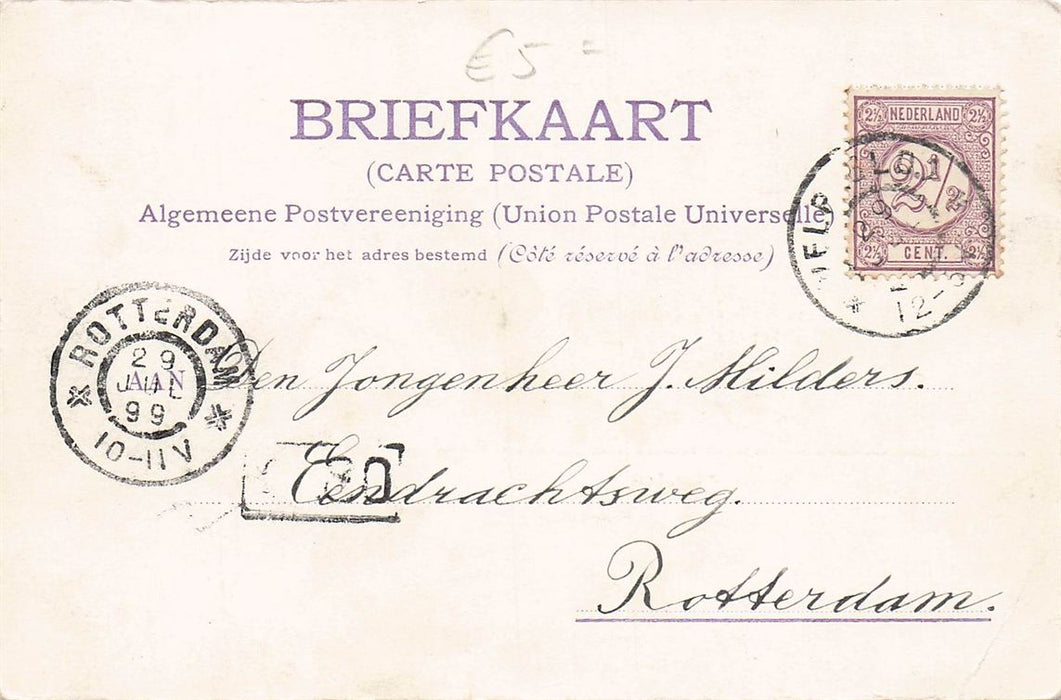 €5 =
BRIEFKAART
(CARTE POSTALE)
Algemeene Postvereeniging (Union Postale Universelle)
Zijde voor het adres bestemd (Côté réservé à l'adresse)
2½ NEDERLAND 2½
2½
2½ CENT.
VELP
12-
ROTTERDAM
29
JUL
99
10-11V
AAN
Den Jongenheer J. Milders.
Eendrachtsweg.
Rotterdam.